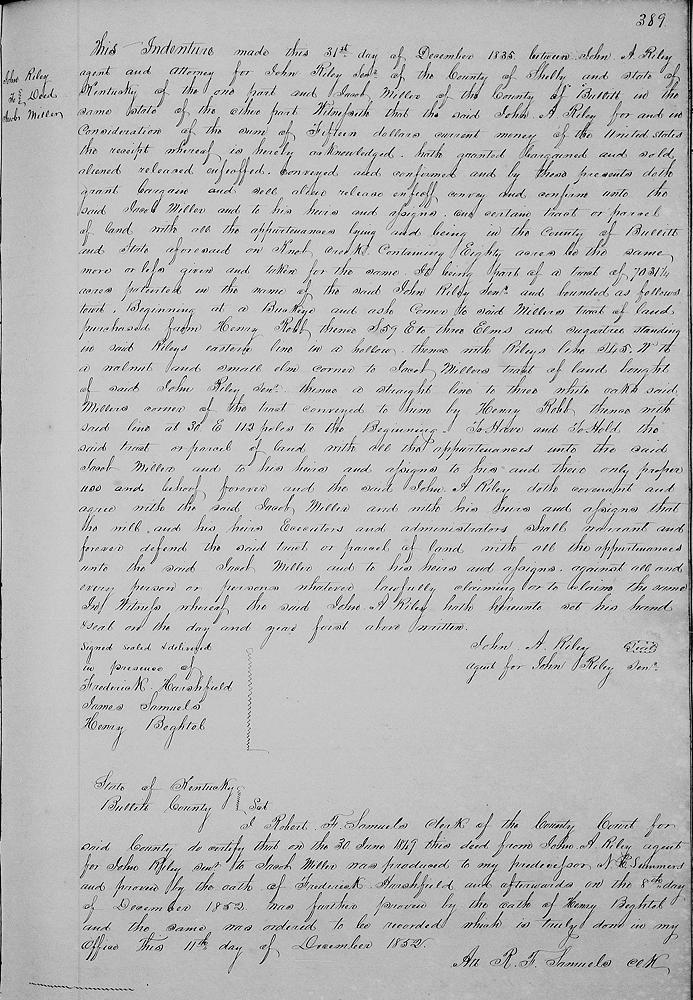 389
John Riley
To } Deed
Jacob Miller
This Indenture made this 31st day of December 1835 between John A Riley
agent and attorney for John Riley Senr of the County of Shelby and state of
Kentucky of the one part and Jacob Miller of the County of Bullitt in the
same state of the other part Witnesseth that the said John A Riley for and in
Consideration of the sum of Fifteen dollars current money of the United states
the receipt whereof is hereby acknowledged. hath granted bargained and sold,
aliened released enfeoffed. conveyed and confirmed and by these presents doth
grant bargain and sell alien release enfeoff convey and confirm unto the
said Jacob Miller and to his heirs and assigns. one certain tract or parcel
of land with all the appurtenances lying and being in the County of Bullitt
and State aforesaid on Knob Creek. Containing Eighty acres be the same
more or less given and taken for the same It being part of a tract of 7031¼
acres patented in the name of the said John Riley Senr and bounded as follows
towit, Beginning at a Buckeye and ash Corner to said Millers tract of land
purchased from Henry Robb thence S 59 E to three Elms and sugartree standing
in said Rileys eastern line in a hollow. thence with Rileys line S 45. W to
a walnut and small elm corner to Jacob Millers tract of land bought
of said John Riley Senr thence a straight line to three white oaks said
Millers corner of the tract conveyed to him by Henry Robb thence with
said line at 30 E 112 poles to the Beginning. To Have and To Hold the
said tract or parcel of land with all the appurtenances unto the said
Jacob Miller and to his heirs and assigns to his and there only proper
use and behoof forever and the said John. A Riley doth covenant and
agree with the said Jacob Miller and with his heirs and assigns that
the will and his heirs Executors and administrators shall warrant and
forever defend the said tract or parcel of land with all the appurtenances
unto the said Jacob Miller and to his heirs and assigns. against all and
every person or persons whatever lawfully claiming or to claim the same
In Witness whereof the said John. A Riley hath hereunto set his hand
& seal on the day and year first above written.
Signed sealed & delivered
in presence of
Frederick Harshfield
James Samuels
Henry Beghtol
John. A. Riley Seal
agent for John Riley Senr
State of Kentucky
Bullitt County } Sct
I Robert. F. Samuels Clerk of the County Court for
said County do certify that on the 30 June 1849 this deed from John. A Riley agent
for John Riley senr to Jacob Miller was produced to my predecessor N. C. Summers
and proved by the oath of Frederick Harshfield and afterwards on the 8th day
of December 1852. was further proven by the oath of Henry Beghtol
and the same was ordered to be recorded which is truly done in my
Office This 11th day of December 1852.
Att R. F. Samuels Clk